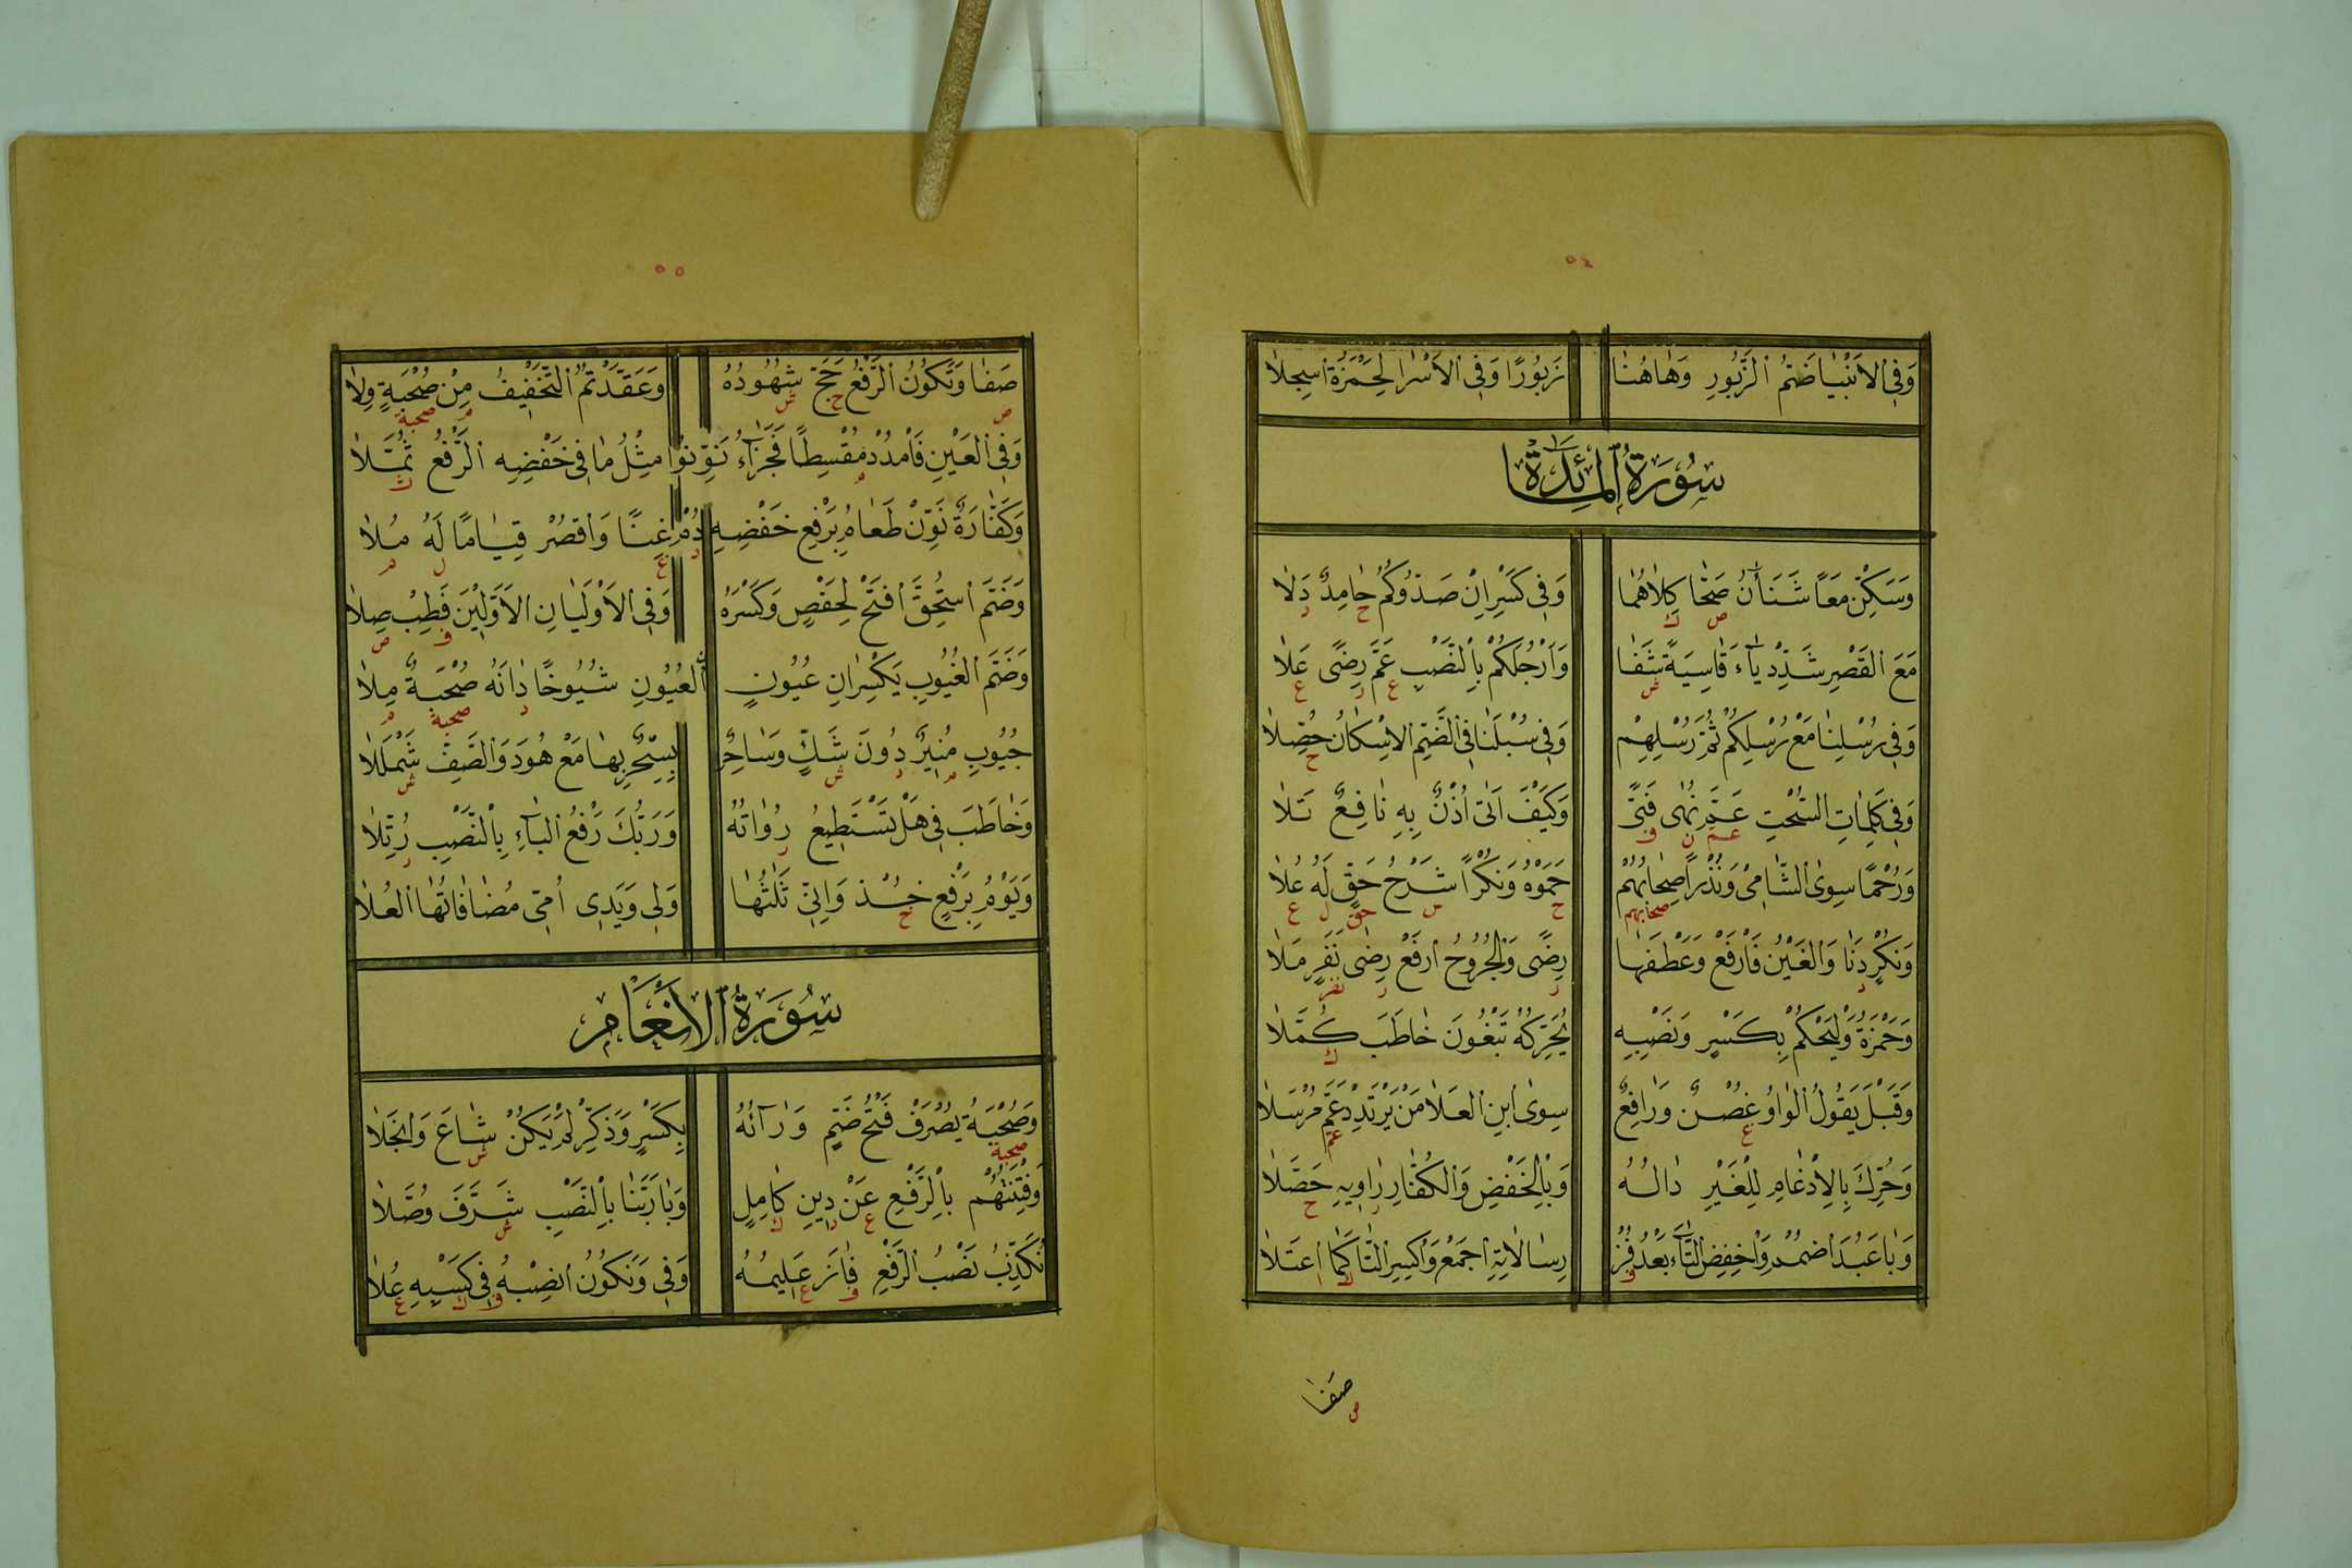 ٥٤
وَفِي الاَنْبِيَا ضَمُّ الزَّبُورِ وَهَاهُنَا زَبُورًا وَفِي الاَسْرَا لِحَمْزَةَ اُسْجِلَا
سُورَةُ المَائِدَة
وَسَكِّنْ مَعًا شَنَآنُ صَحَّا كِلاَهُمَا وَفِي كَسْرِ اِنْ صَدُّوكُمُ حَامِدٌ دَلَا
مَعَ القَصْرِ شَدِّدْ يَاءَ قَاسِيَةً شَفَا وَاَرْجُلَكُمْ بِالنَّصْبِ عَمَّ رِضًى عَلَا
وَفِي رُسْلِنَا مَعْ رُسْلِكُمْ ثُمَّ رُسْلِهِمْ وَفِي سُبْلَنَا فِي الضَّمِّ الاِسْكَانُ حُصِّلَا
وَفِي كَلِمَاتِ السُّحْتِ عَمَّ نُهٰى فَتًى وَكَيْفَ اَتٰى اُذْنٌ بِهِ نَافِعٌ تَلَا
وَرُحْمًا سِوَى الشَّامِي وَنُذْرًا صِحَابُهُمْ حَمَوْهُ وَنُكْرًا شَرْحُ حَقٍّ لَهُ عُلَا
وَنُكْرٍ دَنَا وَالعَيْنُ فَارْفَعْ وَعَطْفَهَا رِضًى وَالجُرُوحُ ارْفَعْ رِضَى نَفَرٍ مَلَا
وَحَمْزَةُ وَلْيَحْكُمْ بِكَسْرٍ وَنَصْبِهِ يُحَرِّكُهُ تَبْغُونَ خَاطَبَ كُمَّلَا
وَقَبْلَ يَقُولُ الوَاوُ غُصْنٌ وَرَافِعٌ سِوَى ابْنِ العَلَا مَنْ يَرْتَدِدْ عَمَّ مُرْسَلَا
وَحُرِّكَ بِالاِدْغَامِ لِلْغَيْرِ دَالُهُ وَبِالخَفْضِ وَالكُفَّارِ رَاوِيهِ حَصَّلَا
وَبَا عَبُدَ اضْمُمْ وَاخْفِضِ التَّاءَ بَعْدُ فُزْ رِسَالاَتِهِ اجْمَعْ وَاكْسِرِ التَّا كَمَا اعْتَلَا
صَفَا
٥٥
صَفَا وَتَكُونُ الرَّفْعُ حَجَّ شُهُودُهُ وَعَقَّدْتُمُ التَّخْفِيفُ مِنْ صُحْبَةٍ وِلَا
وَفِي العَيْنِ فَامْدُدْ مُقْسِطًا فَجَزَاءُ نَوِّنُوا مِثْلُ مَا فِي خَفْضِهِ الرَّفْعُ ثُمَّلَا
وَكَفَّارَةٌ نَوِّنْ طَعَامُ بِرَفْعِ خَفْضِهِ دُمْ غِنًا وَاقْصُرْ قِيَامًا لَهُ مُلَا
وَضَمَّ اسْتُحِقَّ افْتَحْ لِحَفْصٍ وَكَسْرَهُ وَفِي الاَوْلَيَانِ الاَوَّلِينَ فَطِبْ صِلَا
وَضَمَّ الغُيُوبِ يَكْسِرَانِ عُيُونٍ العُيُونِ شُيُوخًا دَانَهُ صُحْبَةٌ مِلَا
جُيُوبِ مُنِيرٌ دُونَ شَكٍّ وَسَاحِرٌ بِسِحْرٌ بِهَا مَعْ هُودَ وَالصَّفِّ شَمْلَلَا
وَخَاطَبَ فِي هَلْ تَسْتَطِيعُ رُوَاتُهُ وَرَبُّكَ رَفْعُ البَاءِ بِالنَّصْبِ رُتِّلَا
وَيَوْمُ بِرَفْعٍ خُذْ وَاِنِّي ثَلَاثُهَا وَلِي وَيَدِي اُمِّي مُضَافَاتُهَا العُلَا
سُورَةُ الاَنْعَام
وَصُحْبَةُ يُصْرَفْ فَتْحُ ضَمٍّ وَرَاؤُهُ بِكَسْرٍ وَذَكِّرْ لَمْ يَكُنْ شَاعَ وَانْجَلَا
وَفِتْنَتُهُمْ بِالرَّفْعِ عَنْ دِينِ كَامِلٍ وَبَا رَبَّنَا بِالنَّصْبِ شَرَّفَ وُصَّلَا
نُكَذِّبُ نَصْبُ الرَّفْعِ فَازَ عَلِيمُهُ وَفِي وَنَكُونُ انْصِبْهُ فِي كَسْبِهِ عُلَا